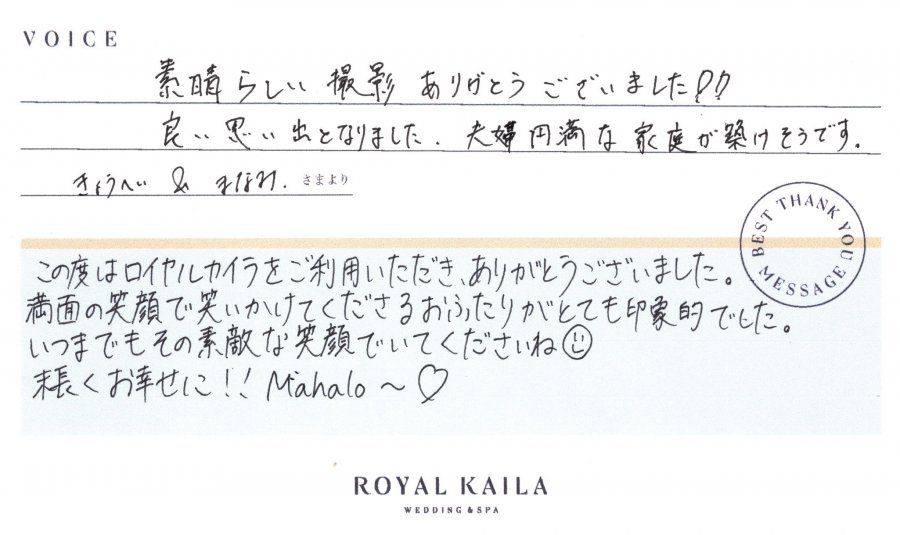 VOICE
素晴らしい撮影ありがとうございました!!
良い思い出となりました. 夫婦円満な家庭が築けそうです。
きょうへい & まなみ. さまより
BEST THANK YOU MESSAGE
この度はロイヤルカイラをご利用いただき、ありがとうございました。
満面の笑顔で笑いかけてくださるおふたりがとても印象的でした。
いつまでもその素敵な笑顔でいてくださいね☺
末長くお幸せに!! Mahalo〜♡
ROYAL KAILA
WEDDING & SPA